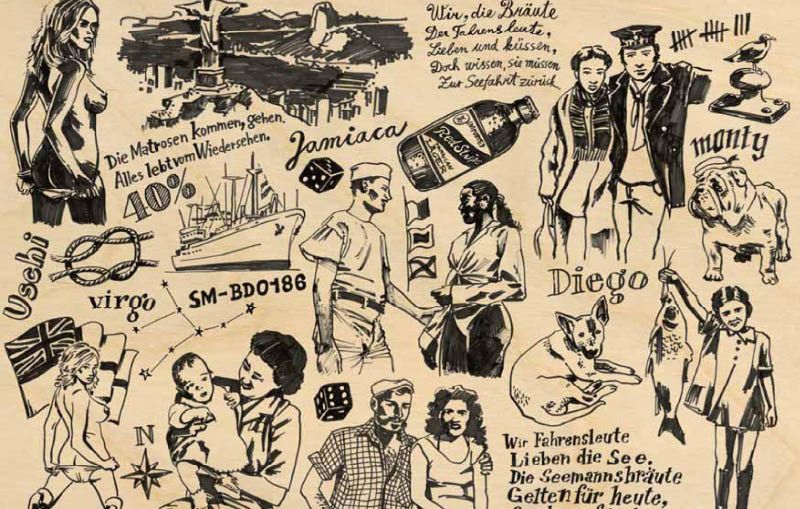 Wir, die Bräute
Der Fahrensleute,
Lieben und küssen,
Doch wissen, sie müssen
Zur Seefahrt zurück.
Die Matrosen kommen, gehen.
Alles lebt vom Wiedersehen.
40%
Jamiaca
monty
Uschi
virgo
SM-BD0186
Diego
N
Wir Fahrensleute
Lieben die See.
Die Seemannsbräute
Gelten für heute,